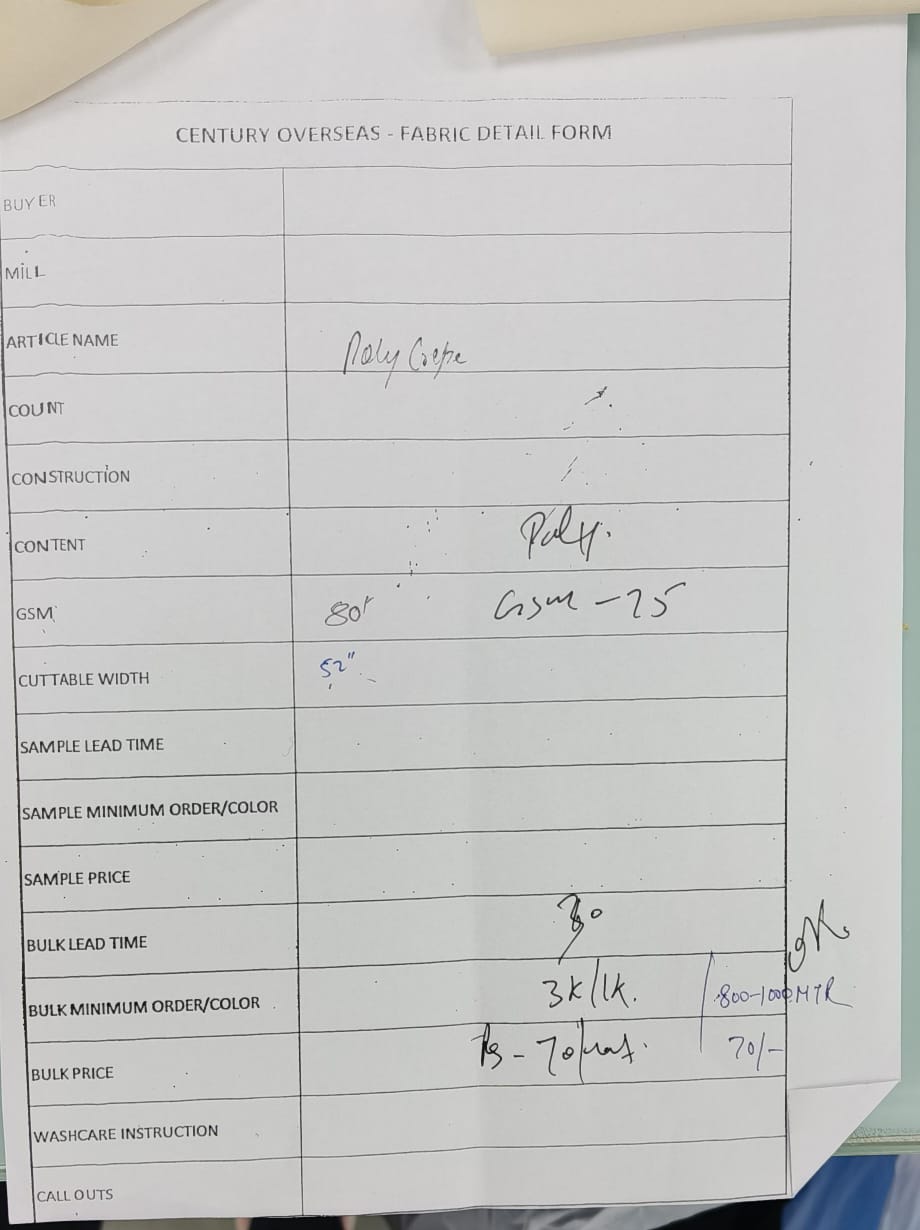 CENTURY OVERSEAS - FABRIC DETAIL FORM
BUYER
MILL
ARTICLE NAME Poly Crepe
COUNT
CONSTRUCTION
CONTENT Poly.
GSM 80 GSM - 75
CUTTABLE WIDTH 52"
SAMPLE LEAD TIME
SAMPLE MINIMUM ORDER/COLOR
SAMPLE PRICE
BULK LEAD TIME
BULK MINIMUM ORDER/COLOR 3K/1K. 800-1000 MTR
BULK PRICE Rs - 70/ 70/-
WASHCARE INSTRUCTION
CALL OUTS